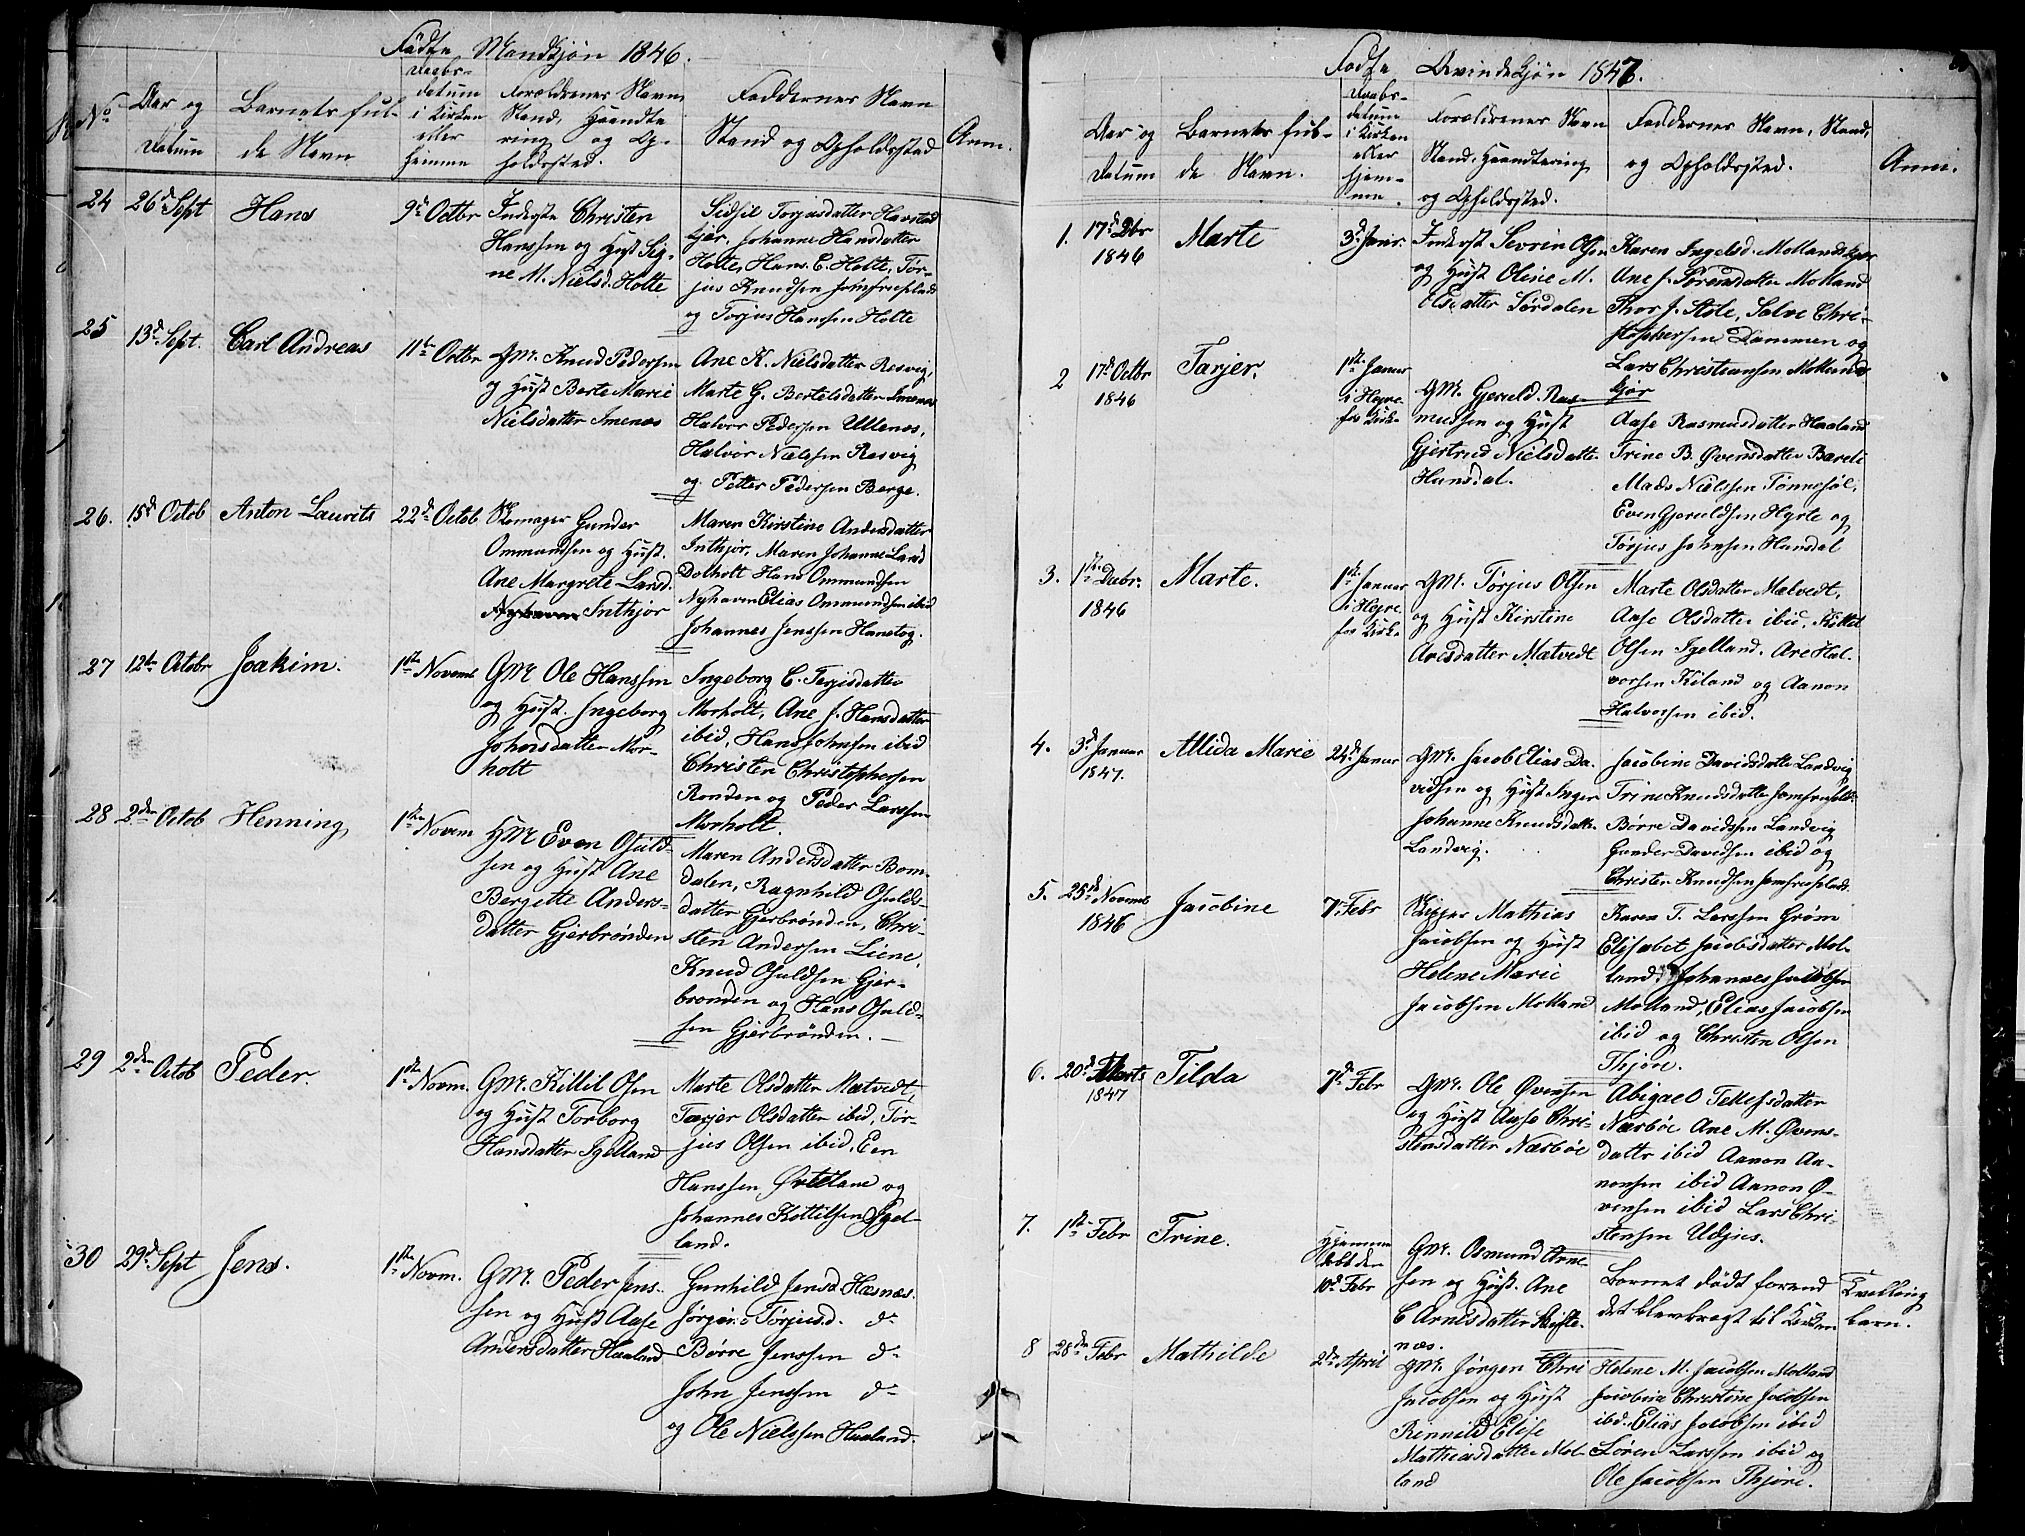 Födte Mandkjön 1846.
No
Aar og
Datum
Barnets ful-
de Navn
Daabs-
datum
i Kirken
eller
heimme
Forældrenes Navn,
Stand, Haandte
ring og Op-
holdssted.
Faddernes Navn
Stand og Opholdssted
Anm.
24 26d Sept Hans 9d Octbr
Inderste Christen
Hanssen og Hust Sig-
ne M. Nielsd. Holte
Sidsil Torjusdatter Havstad
kjer, Johanne Hansdatter
Holte, Hans C. Holte, Tör-
jus Knudsen Jomfrueplads
og Torjus Hansen Holte
25 13d Sept. Carl Andreas 11te Octbr
GM. Knud Pedersen
og Hust Berte Marie
Nielsdatter Imenes
Ane K. Nielsdatter Resvig,
Marte G. Bertelsdatter Imenes
Halvor Pedersen Ullenes,
Halvor Nielssen Resvig
og Petter Pedersen Berge.
26. 15d Octob Anton Laurits 22d Octob
Skomager Gunder
Ommundsen og Hust.
Ane Margrete Land.
Nyhaven Inthjor
Maren Kirstine Andersdatter
Inthjor, Maren Johanne Land
Dolholt Hans Ommundsen
Nyhaven Elias Ommundsen ibid
Johannes Jenssen
27 12te Octobr Joakim. 1ste Novemb
GM. Ole Hanssen
og Hust. Ingeborg
Johnsdatter Mor-
holt
Ingeborg C. Terjisdatter
Morholt, Ane J. Hansdatter
ibid, Hans Johnsen ibid
Christen Christophersen
Ronden og Peder Larssen
Morholt.
28 2den Octob Henning 1ste Novem
HM Even Osuld-
sen og Hust Ane
Bergitte Anders-
datter Gjerbrönden
Maren Andersdatter Bom-
dalen, Ragnhild Osulds-
datter Gjerbrönden, Chri-
sten Andersen Liene,
Knud Osuldsen Gjer-
bronden og Hans Osuld-
sen Gjerbrönden.
29 2den Octob Peder. 1ste Novm.
GM. Kittil Osen
og Hust Torborg
Hansdatter Igelland
Marte Olsdatter Mætvedt,
Tarjer Olsdatter ibid, Tör-
jus Olsen ibid, Een
Hanssen og
Johannes Kittilsen Igel-
land.
30 29d Sept Jens. 1ste Novm.
GM. Peder Jens-
sen og Hust Aase
Andersdatter Haaland
Gunhild Jensd. Hasnæs
Jörgine Torjusd. do
Börre Jenssen do
John Jenssen do
og Ole Nielssen Haaland.
Födte Qvindekjön 1847.
Aar og
Datum
Barnets ful-
de Navn.
Daabs-
datum
i Kirken
eller
hjem-
me.
Forældrenes Navn
Stand, Haandtering
og Opholdssted.
Faddernes Navn, Stand,
og Opholdssted.
Anm.
1. 17d Dbr
1846
Marte 3d Janr.
Inderst Sevrin Olsen
og Hust Oline M.
Olsdatter Sördalen
Karen Ingelsd. Mollandskjær
Ane J. Sörensdatter Molland
Thor J. Hole, Salve Chri-
stophersen Dammen og
Lars Christiansen Mollands
kjör
2 17d Octbr
1846
Tarjer. 1ste Januar
i Hegre-
fos Kirke
GM. Gjeruld Ras-
mussen og Hust
Gjertrud Nielsdatter
Hunsdal.
Aase Rasmusdatter Haaland
Trine B. Övensdatter Barli
Mads Nielssen Tönnesöl,
Even Gjeruldsen Hyrte og
Törjus Johnsen Hunsdal
3. 1ste Decbr.
1846
Marte. 1ste Januar
i Hegre-
fos Kirk-
GM. Törjus Olsen
og Hust Kirstine
Aresdatter Mætvedt
Marte Olsdatter Mætvedt,
Aase Olsdatter ibid, Kittil
Olsen Igelland, Are Hal-
vorsen Kiland og Aanon
Halvorsen ibid.
4. 3d Januar
1847.
Allida Marie 24d Januar
GM. Jacob Elias Da-
vidsen og Hust Inger
Johanne Knudsdatter
Landvig.
Jacobine Davidsdatter Landvig
Trine Knudsdatter Jomfruplads
Börre Davidssen Landvig
Gunder Davidsen ibid og
Christen Knudsen Jomfrueplads
5. 25d Novemb
1846
Jacobine 7d Febr
Skipper Mathias
Jacobsen og Hust
Helene Marie
Jacobsen Molland
Karen T. Larssen Gröm
Elisabet Jacobsdatter Mol-
land, Johannes Jacobsen
Molland, Elias Jacobsen
ibid og Christen Olsen
Thjöre.
6. 20d Marts
1847
Tilda 7d Febr
GM. Ole Övensen
og Hust Aase Chri-
stensdatter Næsböe
Abigael Tellefsdatter
Næsböe Ane M. Övens-
datter ibid Aanon Aa-
nonsen ibid Aanon Ö-
vensen ibid Lars Chri-
stensen Udjus.
7. 1ste Febr Trine.
Hjemme
döbt den
10d Febr
GM. Osmund Arne-
sen og Hust. Ane
C Arnesdatter
næs.
Barnet dödt forend
det blev bragt til Kirken
Tvilling
barn.
8 28de Febr Mathilde 2den April
GM. Jörgen Chri
Jacobsen og Hust
Rinnild Elise
Mathiasdatter Mol-
land
Helene M. Jacobsen Molland
Jacobine Christine Jacobsen
ibid. Elias Jacobsen ibid
Sören Larssen ibid og
Ole Jacobsen Thjöre.